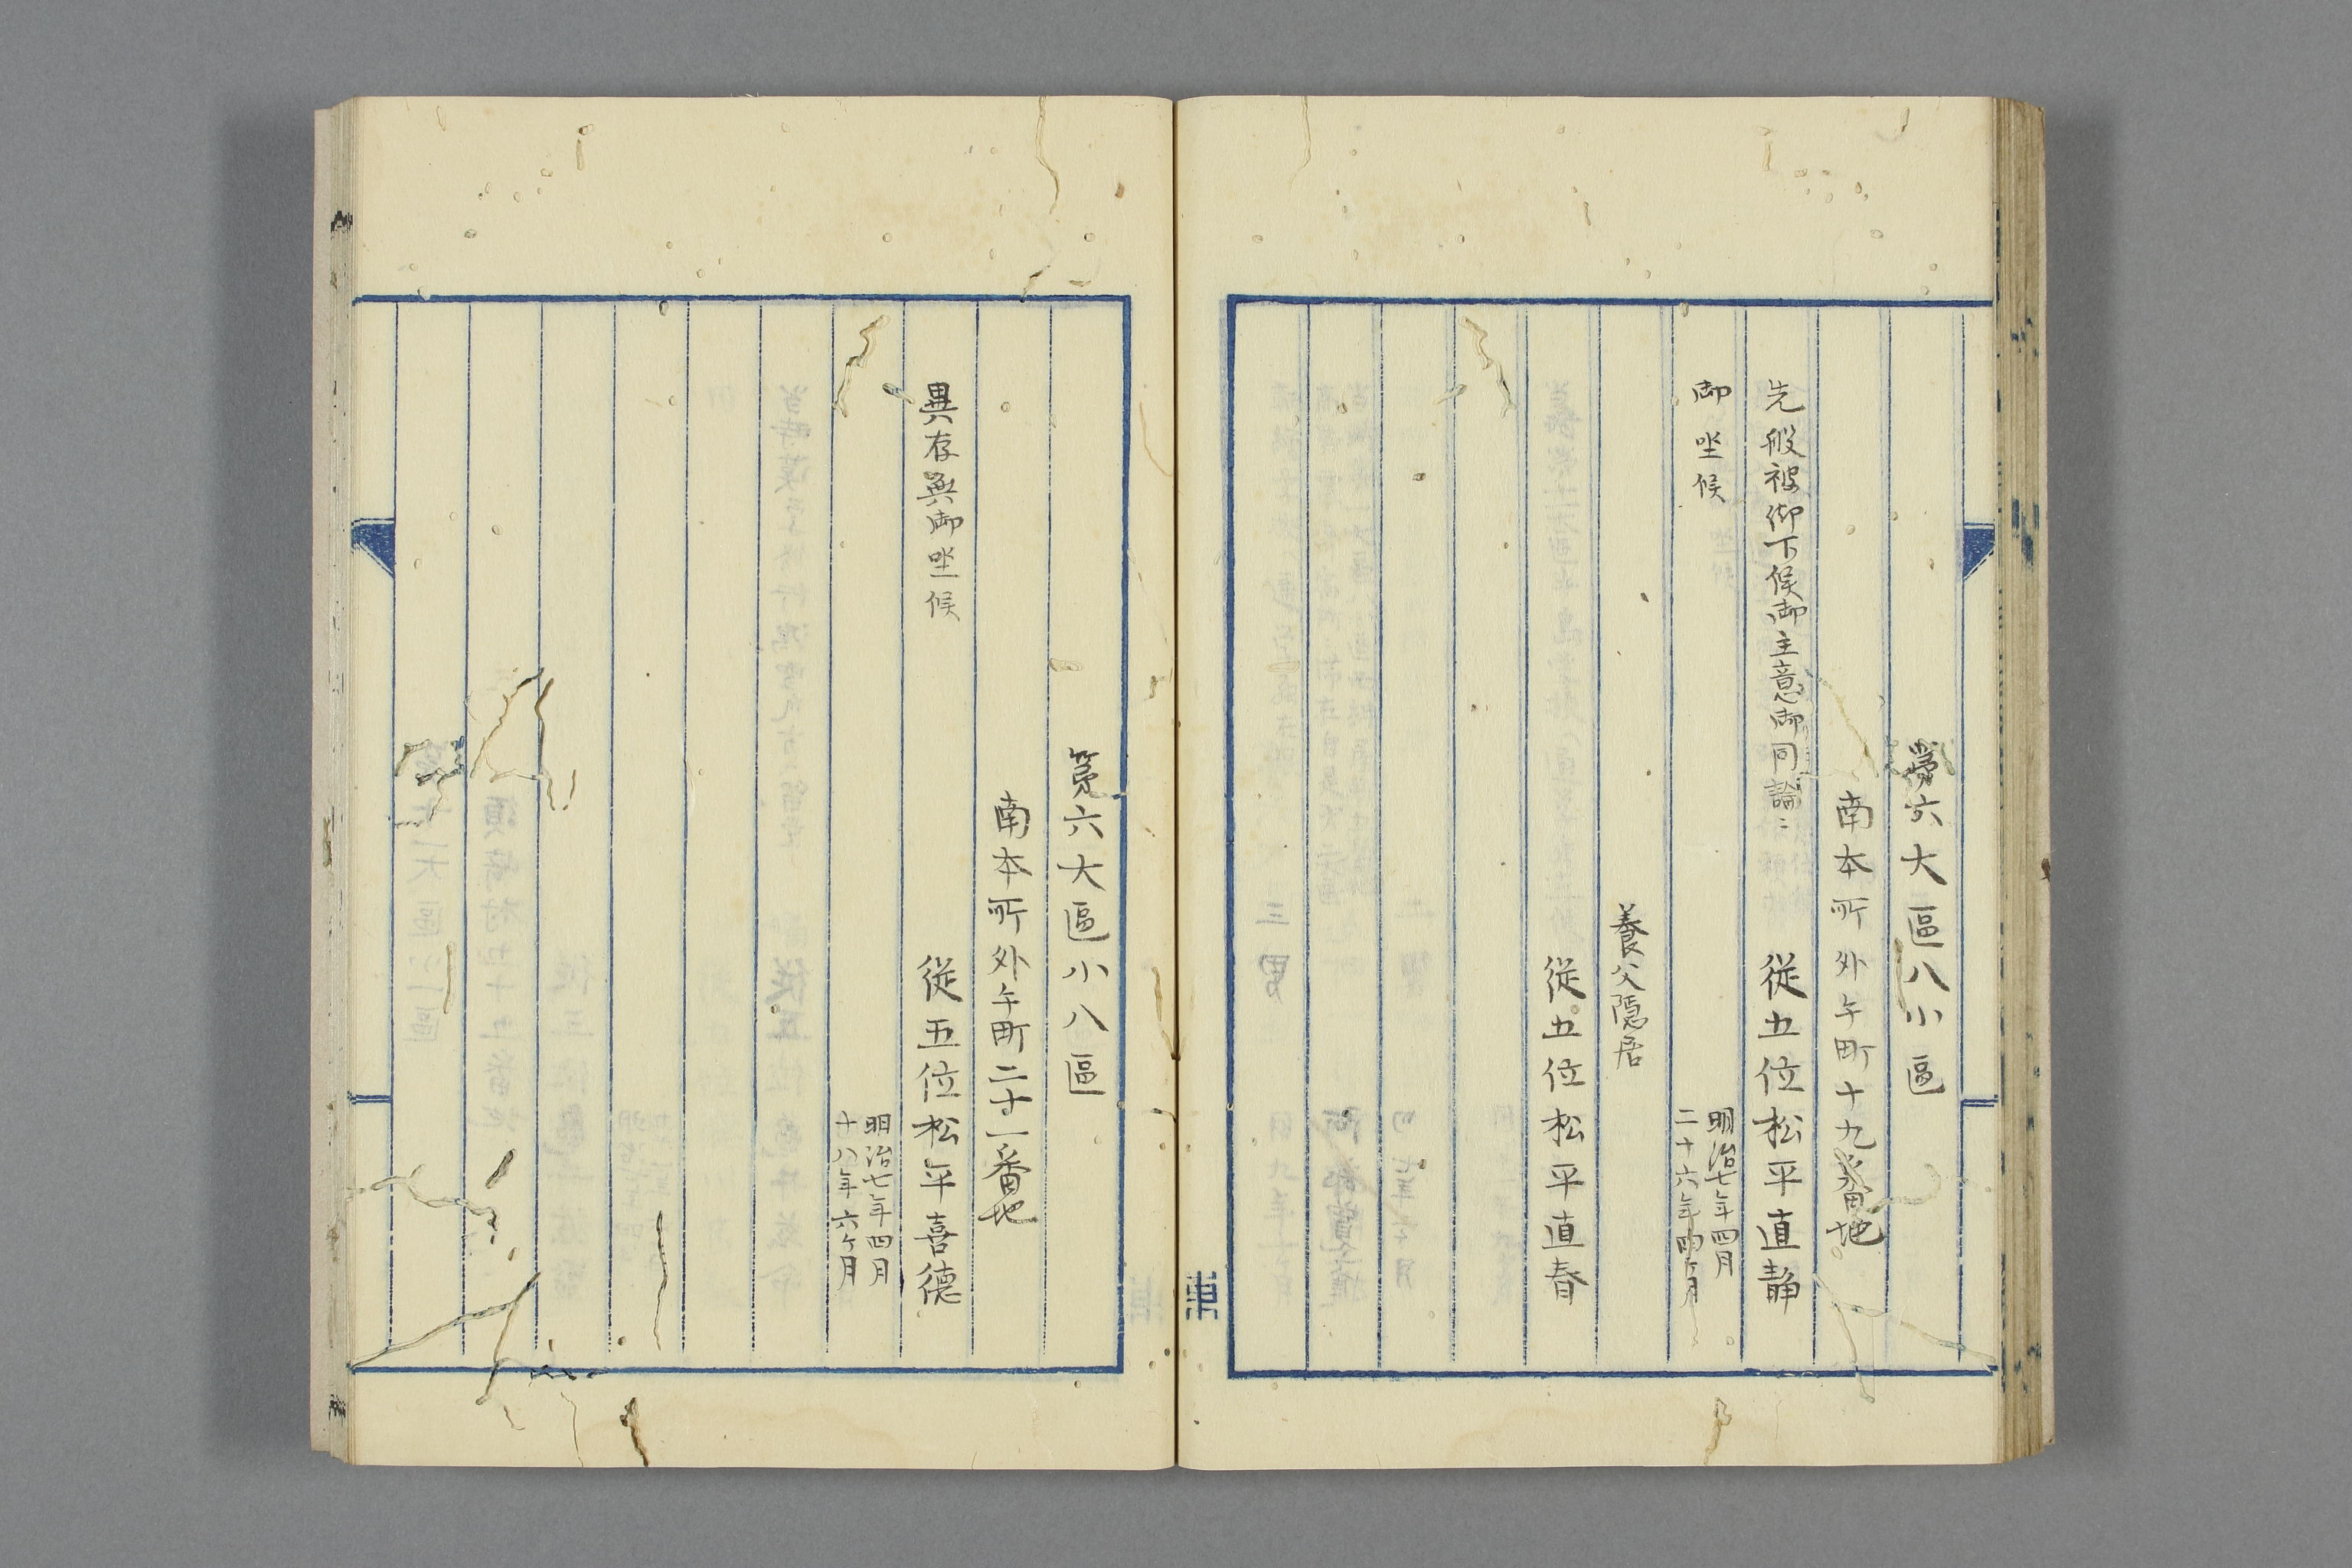 第六大區八小區
南本所外手町十九番地
先般被御下候御主意御同論ニ
從五位松平直静
御坐候
明治七年四月
二十六年四ヶ月
養父隠居
從五位松平直春
第六大區小八區
南本所外手町二十一番地
異存無御坐候
從五位松平喜德
明治七年四月
十八年六ヶ月